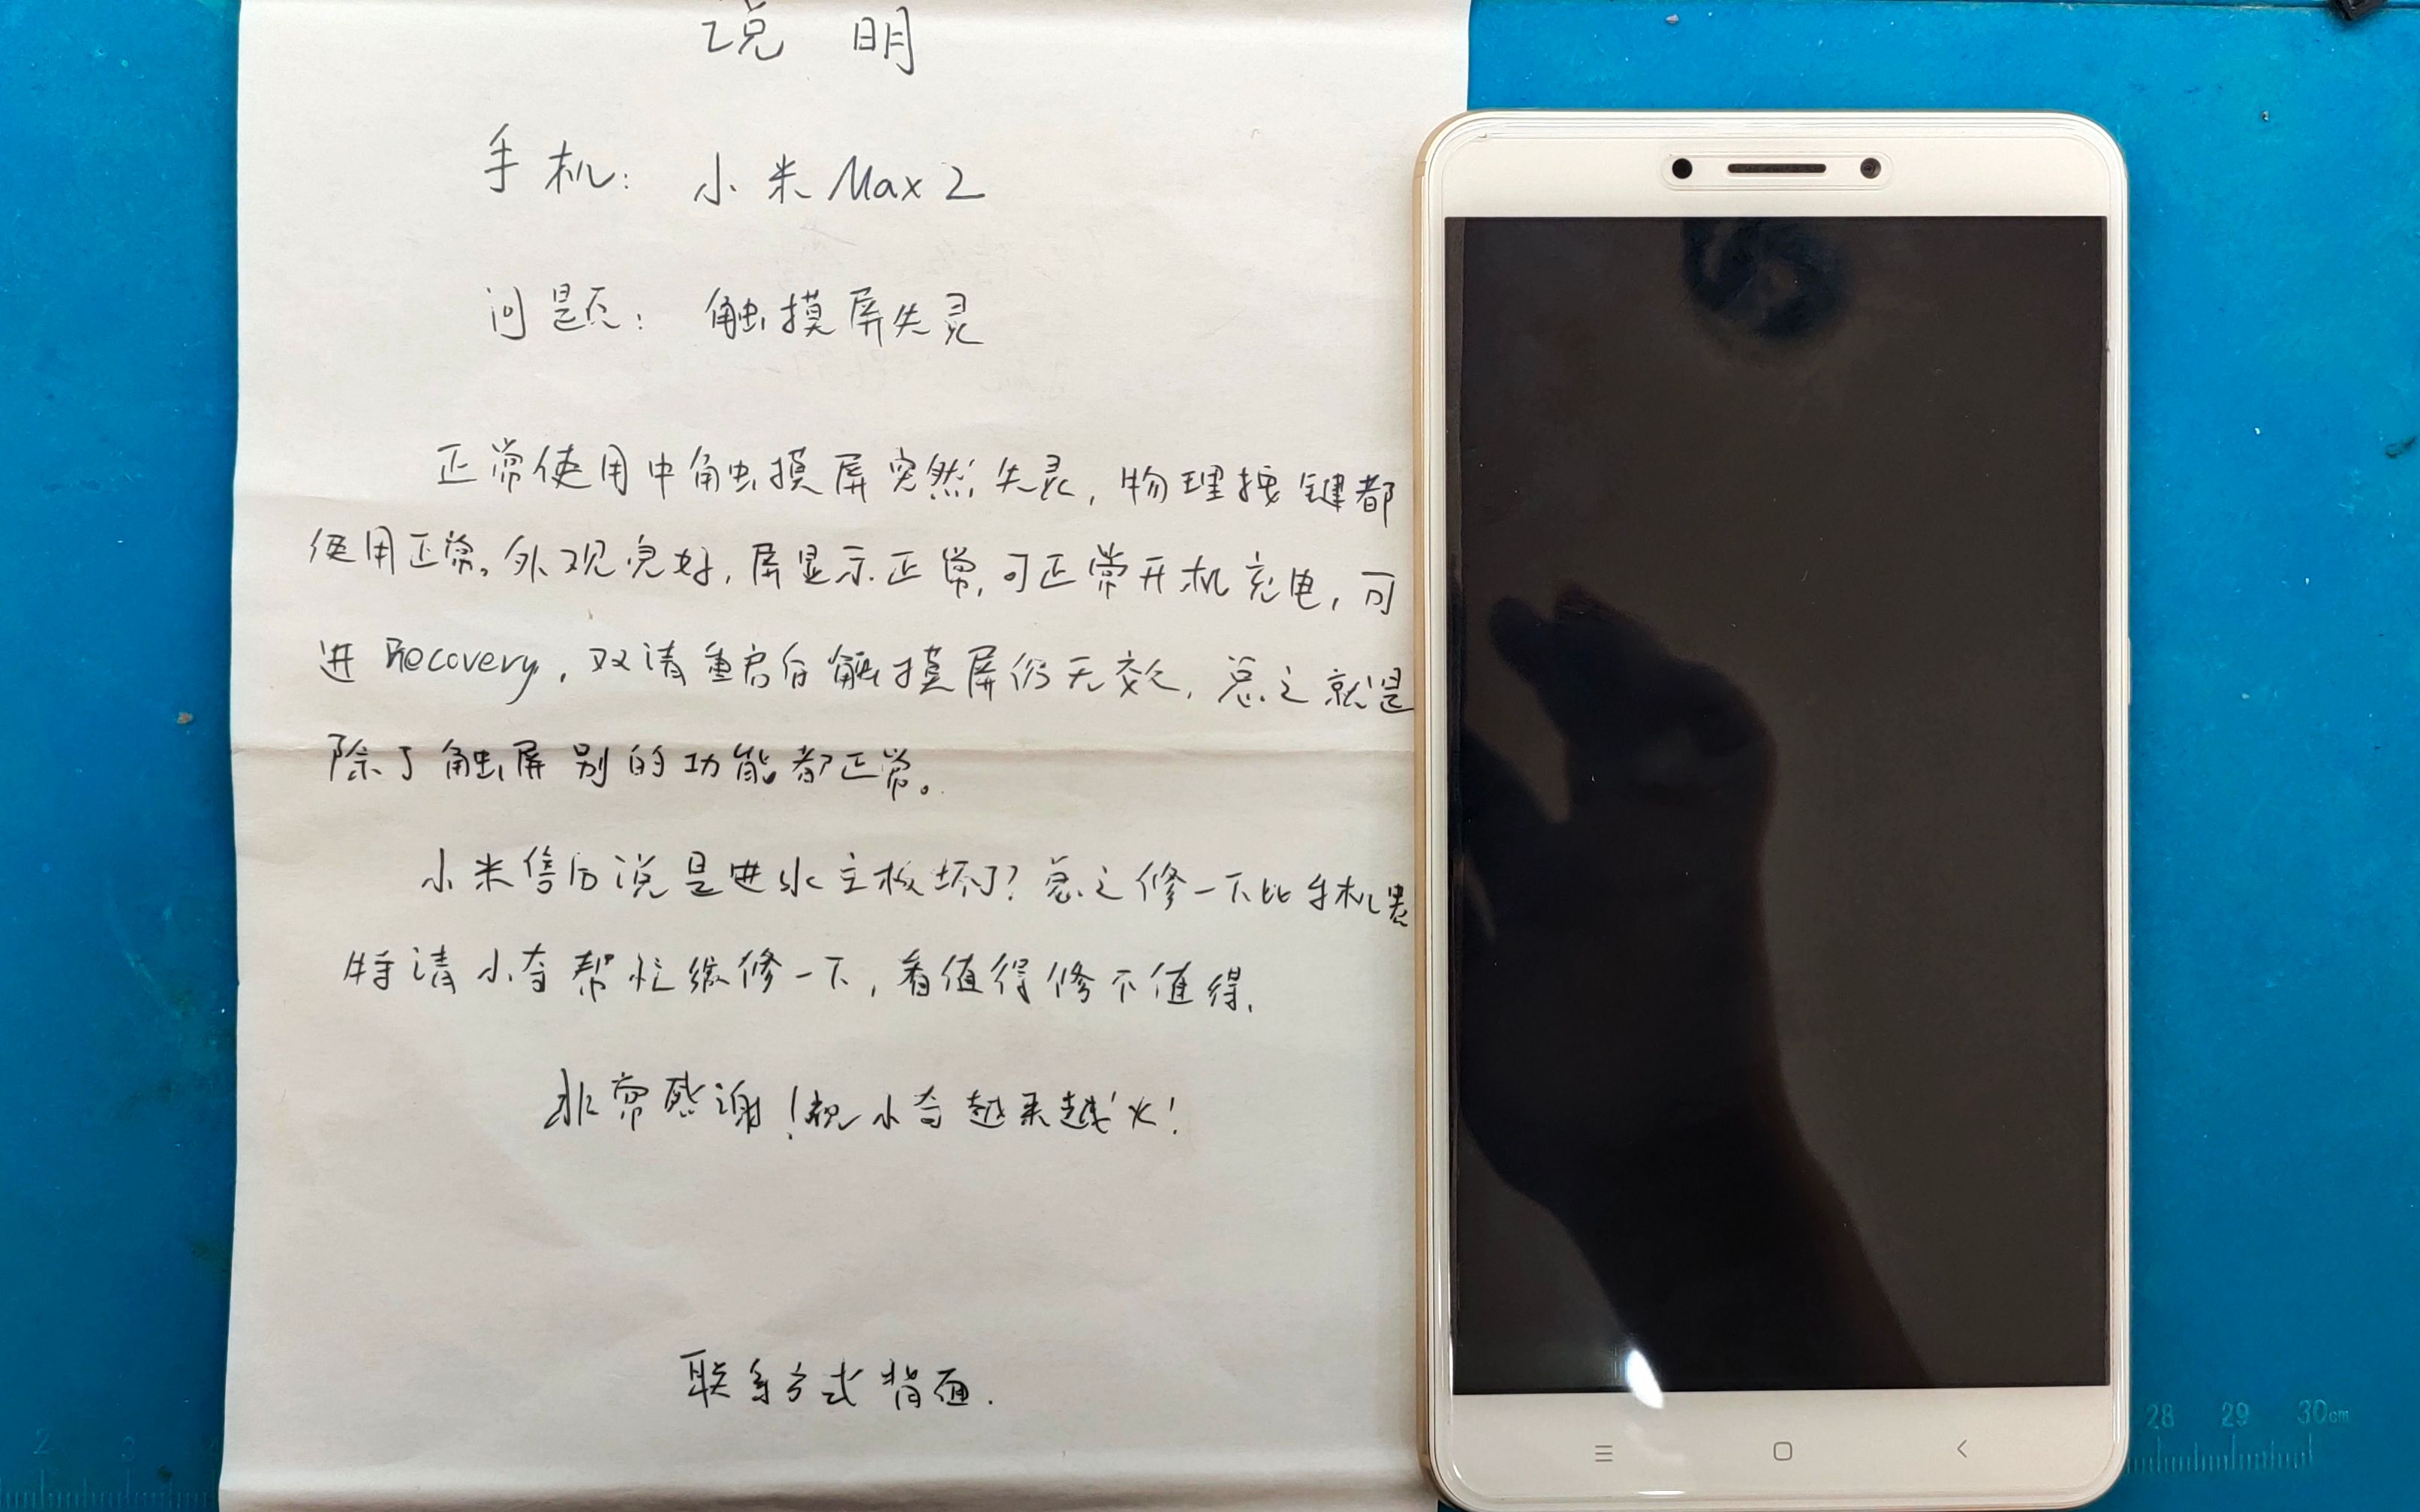 说 明
手机: 小米Max2
问题: 触摸屏失灵
正常使用中触摸屏突然失灵,物理按键都
使用正常。外观完好,屏显示正常,可正常开机充电,可
进Recovery,双清重启后触摸屏仍无效,总之就是
除了触屏别的功能都正常。
小米售后说是进水主板坏了?总之修一下比手机贵
特请小夺帮忙维修一下,看值得修不值得.
非常感谢!祝小夺越来越火!
联系方式背面.
2 3
28 29 30cm